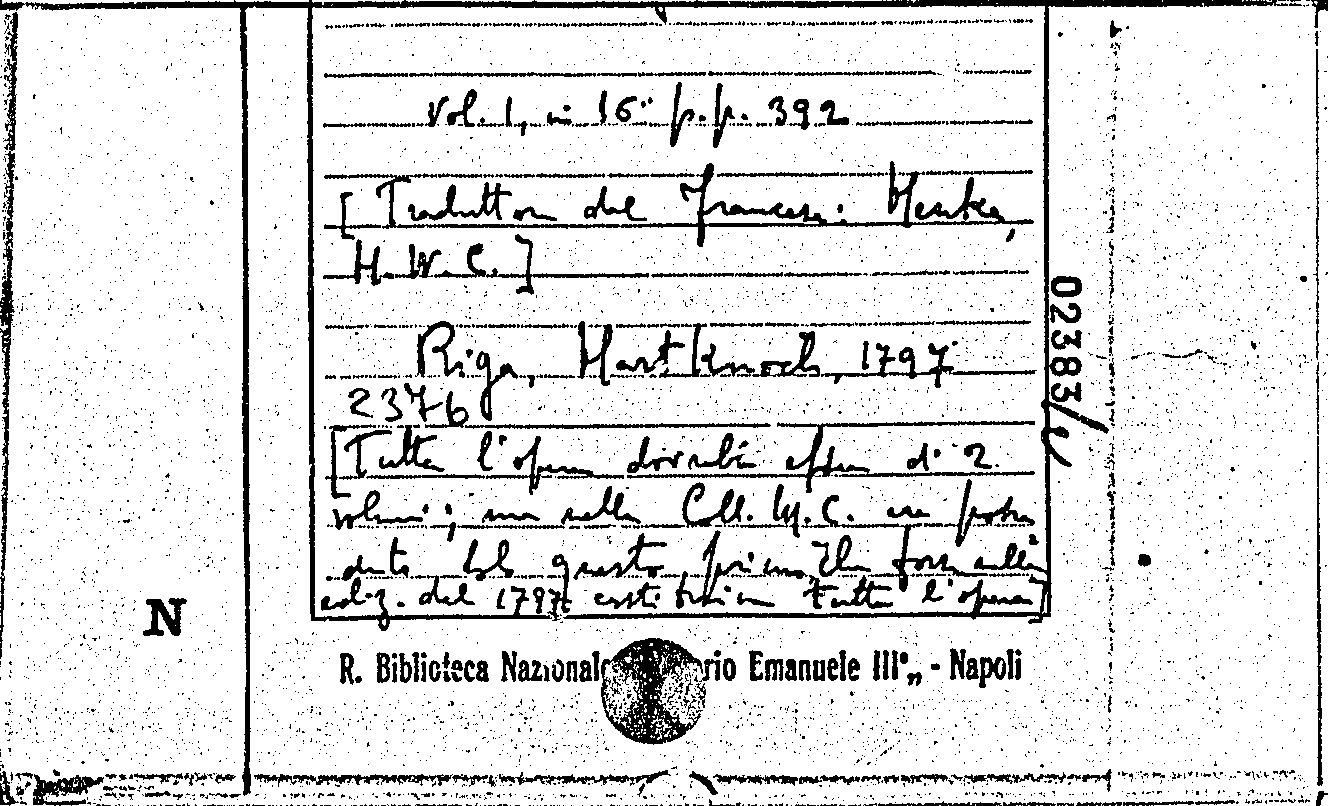 Vol. 1, in 16° p.p. 392
[Traduttore dal francese: Henke,
H. W. C.]
Riga, Hartknoch, 1797
2376
[Tutta l'opera dovrebbe essere di 2
volumi; ma nella Coll. M. C. era posse
duto solo questo primo. Che forse nella
ediz. del 1797 costituiva tutta l'opera]
02383/
N
R. Biblioteca Nazionale rio Emanuele III°„ - Napoli